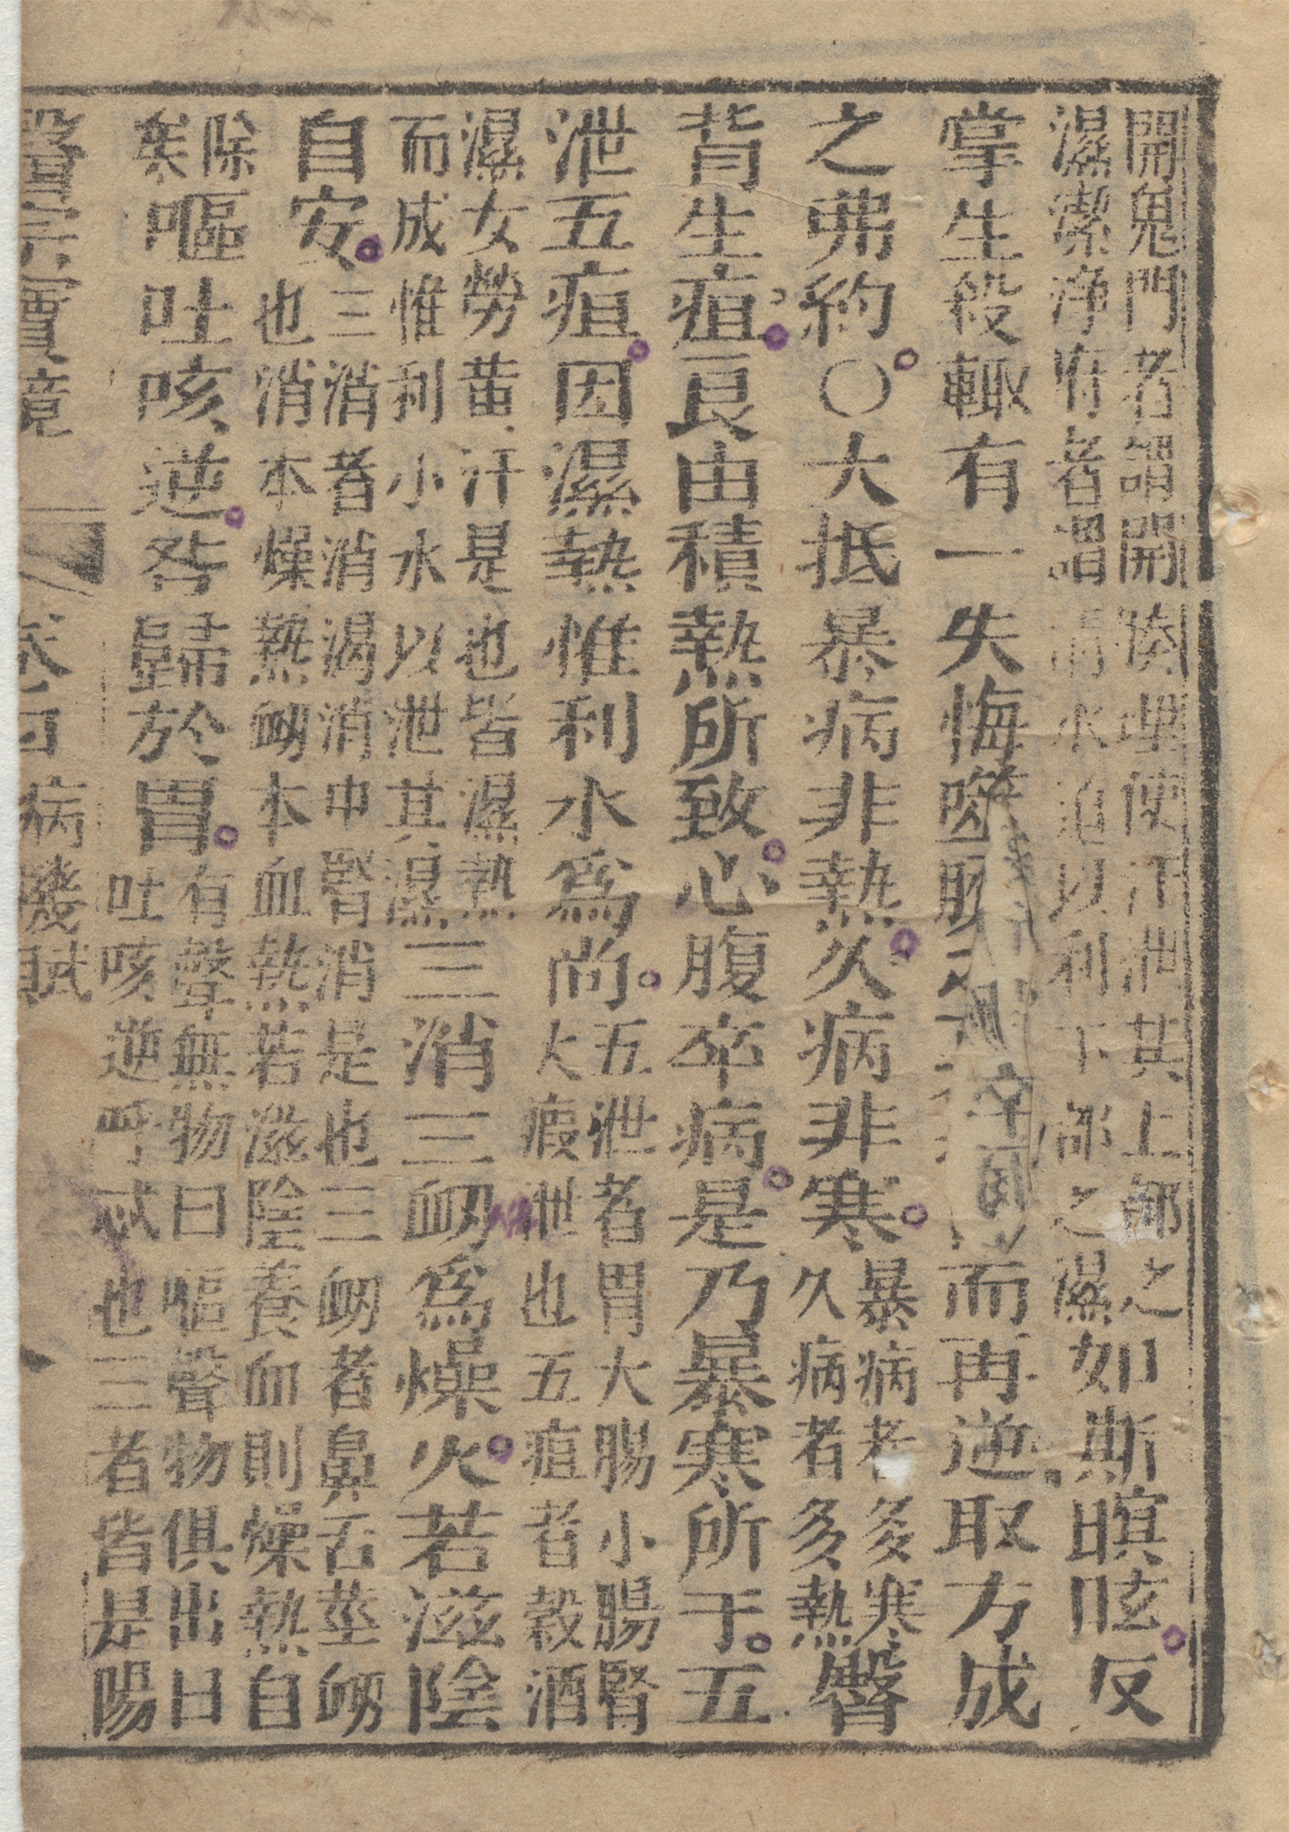 開鬼門者謂開腠理使汗泄其上部之
濕潔淨府者謂清水道以利下部之濕
如斯瞑眩反
掌生殺輙有一失悔噬臍
而再逆取方成
之弗約○大抵暴病非熱久病非寒
暴病者多寒
久病者多熱
臀
背生疽良由積熱所致心腹卒病是乃暴寒所于五
泄五疸因濕熱惟利水爲尚
五泄者胃大腸小腸腎
大瘕泄也五疸者穀酒
濕女勞黄汗是也皆濕熱
而成惟利小水以泄其濕
三消三衂爲燥火若滋陰
自安
三消者消渴消中腎消是也三衂者鼻舌莖衂
也消本燥熱衂本血熱若滋陰養血則燥熱自
除
矣
嘔吐咳逆咎歸於胃
有聲無物曰嘔聲物俱出曰
吐咳逆呼忒也三者皆是陽
醫宗寶鏡
卷
病機賦